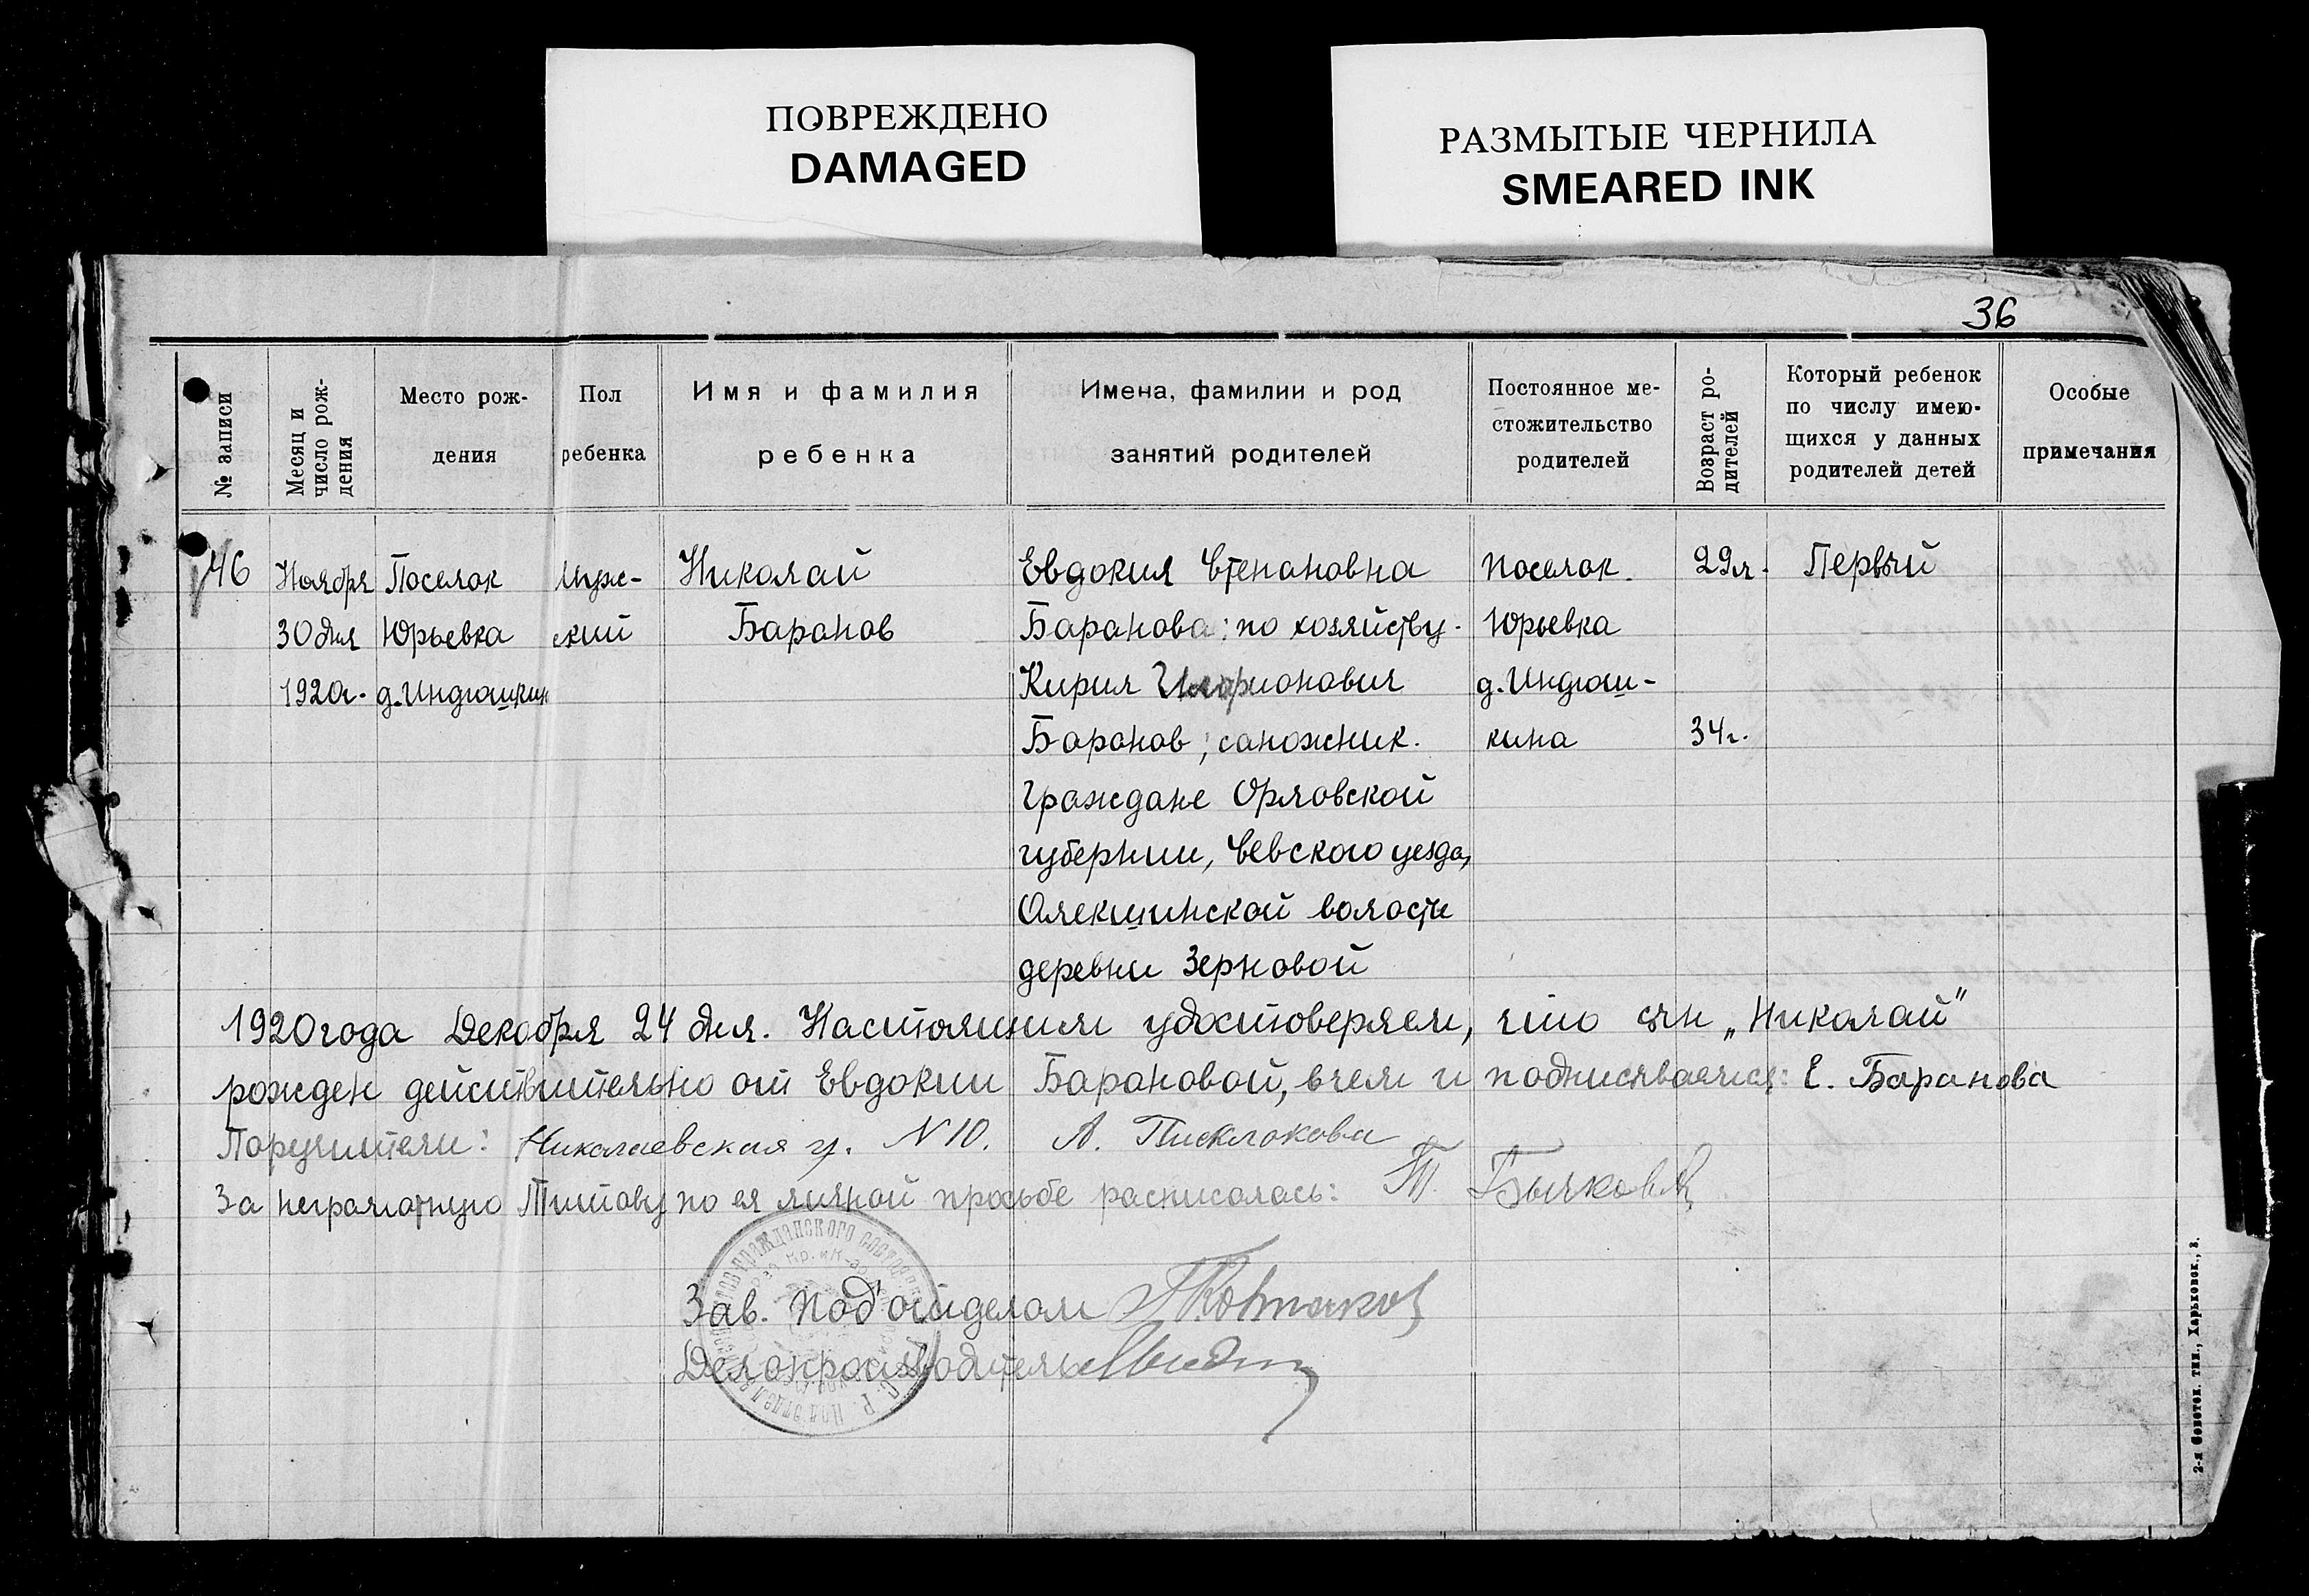 ПОВРЕЖДЕНО
DAMAGED
РАЗМЫТЫЕ ЧЕРНИЛА
SMEARED INK
36
№ записи
Месяц и число рож-дения
Место рож-дения
Пол ребенка
Имя и фамилия ребенка
Имена, фамилии и род занятий родителей
Постоянное ме-стожительство родителей
Возраст ро-дителей
Который ребенок по числу имею-щихся у данных родителей детей
Особые примечания
46 Ноября Поселок Муж- Николай Евдокия Степановна поселок. 29л. Первый
30 дня Юрьевка ский Баранов Баранова; по хозяйству. Юрьевка
1920г. д. Индюшкин Кирил Иларионович д. Индюш-
Баранов; сапожник. кина 34г.
Граждане Орловской
губернии, Севского уезда,
Алекшинской волости
деревни Зерновой
1920 года Декабря 24 дня. Настоящим удостоверяем, что сын „Николай"
рожден действительно от Евдокии Барановой, в чем и подписываемся: Е. Баранова
Поручители: Николаевская у. N 10. А. Писклокова
За неграмотную Титову по ея личной просьбе расписалась: Т. Бычкова
Зав. Под'отделом
Делопроизводитель
2-я Советск. тип., Харьковск., 3.